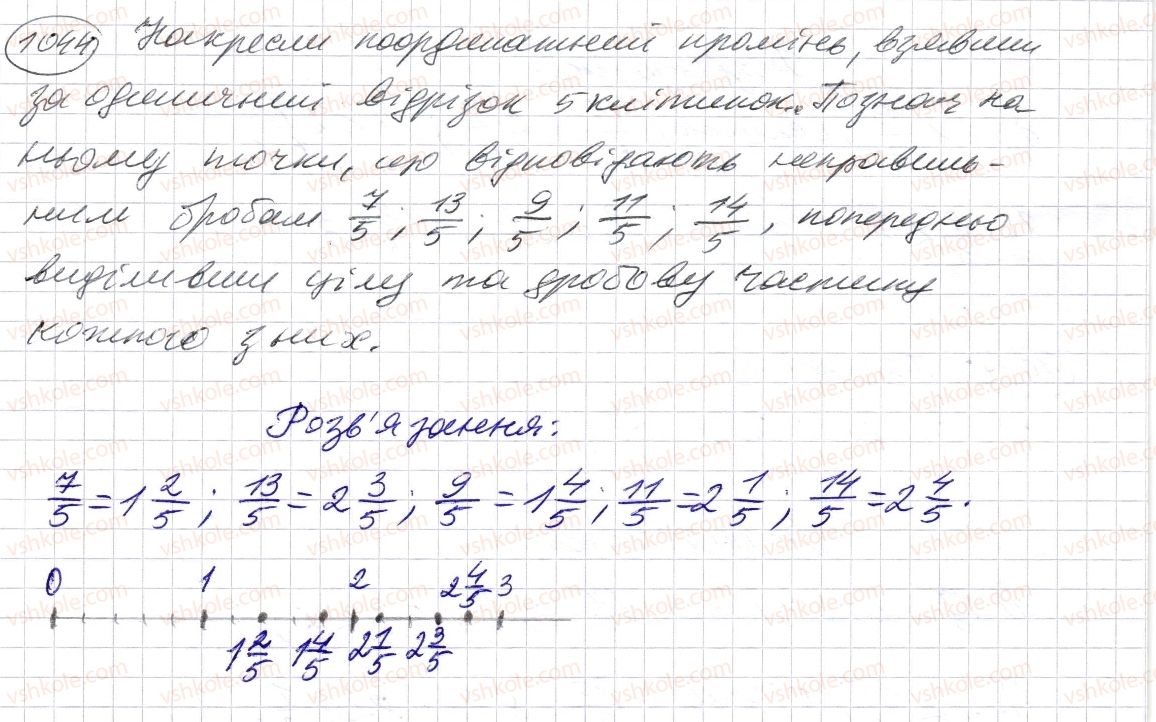 1044 Накресли координатний промінь, взявши
за одиничний відрізок 5 клітинок. Познач на
ньому точки, що відповідають неправиль-
ним дробам 7/5; 13/5; 9/5; 11/5; 14/5, попередньо
виділивши цілу та дробову частину
кожного з них.
Розв'язання:
7/5 = 1 2/5; 13/5 = 2 3/5; 9/5 = 1 4/5; 11/5 = 2 1/5; 14/5 = 2 4/5.
0 1 2 2 4/5 3
1 2/5 1 4/5 2 1/5 2 3/5
vshkole.com